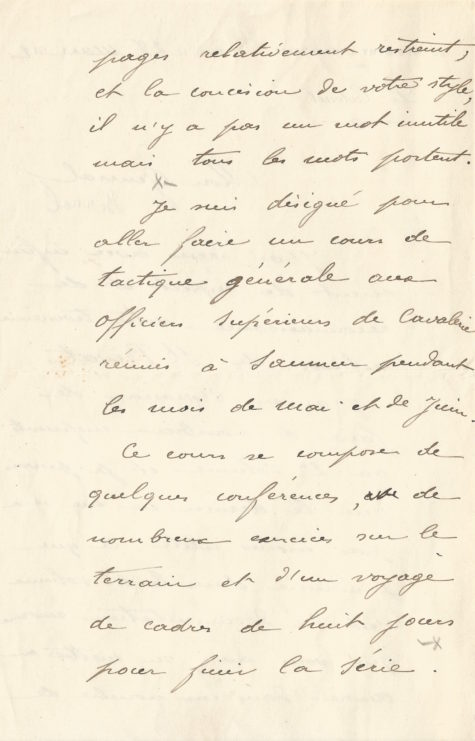 pages relativement restreint,
et la concision de votre style,
il n'y a pas un mot inutile
mais tous les mots portent.
Je suis désigné pour
aller faire un cours de
tactique générale aux
officiers supérieurs de Cavalerie
réunis à Saumur pendant
les mois de Mai et de Juin.
Ce cours se compose de
quelques conférences, de
nombreux exercices sur le
terrain et d'un voyage
de cadres de huit jours
pour finir la série.